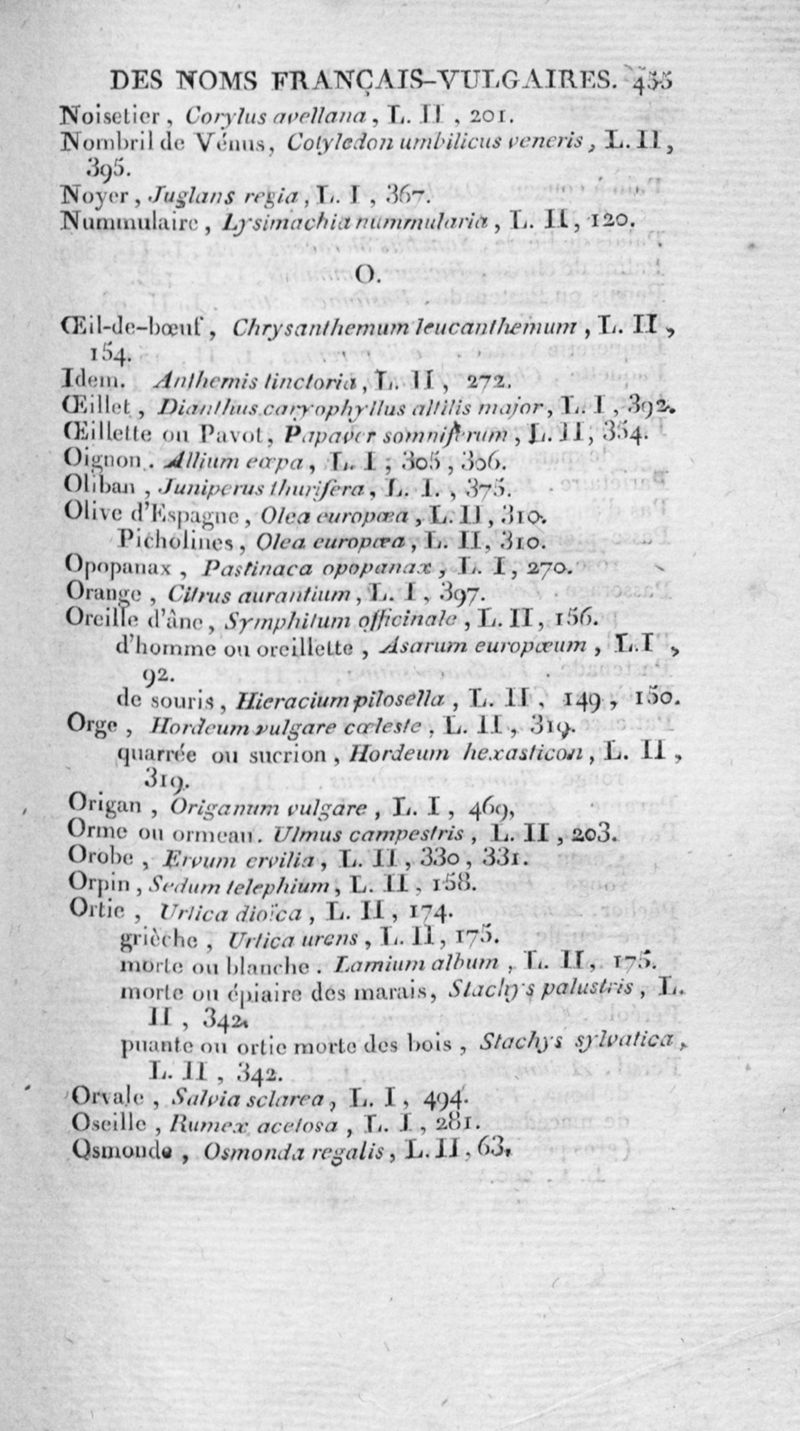 DES NOMS FRANÇAIS-VULGAIRES. 455
Noisetier, Corylus avellana, L. II, 201.
Nombril de Vénus, Cotyledon umbilicus veneris, L. II,
395.
Noyer, Juglans regia, L. I, 367.
Nummulaire, Lysimachia nummularia, L. II, 120.
O.
Œil-de-bœuf, Chrysanthemum leucanthemum, L. II,
154.
Idem. Anthemis tinctoria, L. II, 272.
Œillet, Dianthus caryophyllus altilis major, L. I, 392.
Œillette ou Pavot, Papaver somniferum, L. II, 354.
Oignon. Allium cœpa, L. I; 305, 306.
Oliban, Juniperus thurifera, L. I., 375.
Olive d'Espagne, Olea europæa, L. II, 310.
Picholines, Olea europæa, L. II, 310.
Opopanax, Pastinaca opopanax, L. I, 270.
Orange, Citrus aurantium, L. I, 397.
Oreille d'âne, Symphitum officinale, L. II, 156.
d'homme ou oreillette, Asarum europæum, L. I,
92.
de souris, Hieracium pilosella, L. II, 149, 150.
Orge, Hordeum vulgare cœleste, L. II, 319.
quarrée ou sucrion, Hordeum hexasticon, L. II,
319.
Origan, Origanum vulgare, L. I, 469,
Orme ou ormeau. Ulmus campestris, L. II, 203.
Orobe, Ervum ervilia, L. II, 330, 331.
Orpin, Sedum telephium, L. II, 158.
Ortie, Urtica dioïca, L. II, 174.
grièche, Urtica urens, L. II, 175.
morte ou blanche. Lamium album, L. II, 175.
morte ou épiaire des marais, Stachys palustris, L.
II, 342.
puante ou ortie morte des bois, Stachys sylvatica,
L. II, 342.
Orvale, Salvia sclarea, L. I, 494.
Oseille, Rumex acetosa, L. I, 281.
Osmonde, Osmonda regalis, L. II, 63,